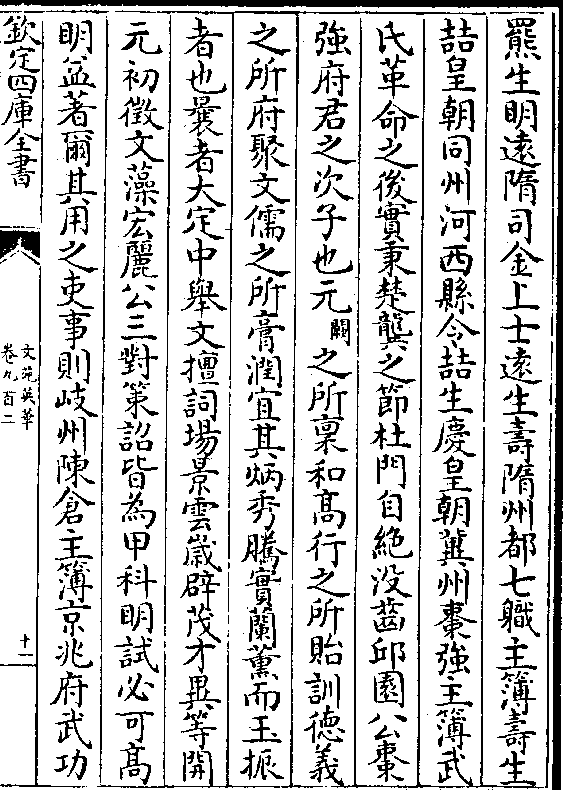 羆生明遠隋司金上士遠生壽隋州都七職主簿壽生
喆皇朝同州河西縣令喆生慶皇朝冀州棗強主簿武
氏革命之後實秉楚龔之節杜門自絶没齒邱園公棗
強府君之次子也元闕之所稟和高行之所貽訓德義
之所府聚文儒之所膏潤宜其炳秀騰實蘭薰而玉振
者也曩者大定中舉文擅詞場景雲歲辟茂才異等開
元初徵文藻宏麗公三對策詔皆為甲科明試必可高
明益著爾其用之吏事則岐州陳倉主簿京兆府武功
欽定四庫全書
文苑英華
卷九百二
十一